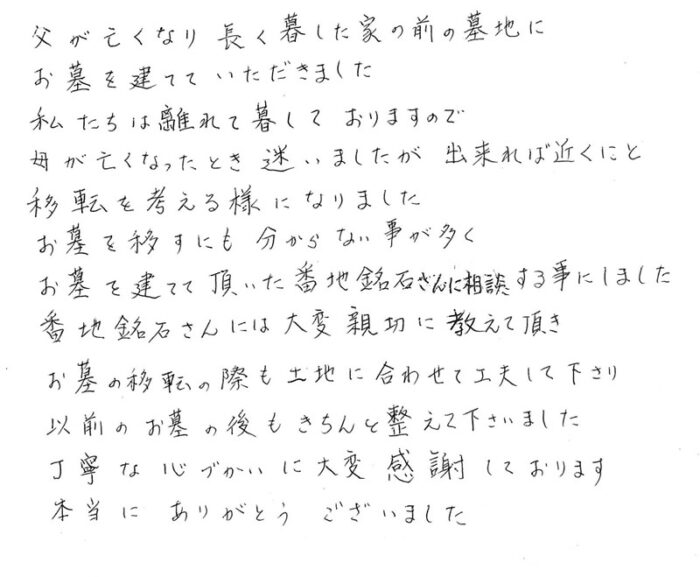 父が亡くなり 長く暮した家の前の墓地に
お墓を建てていただきました
私たちは離れて暮して おりますので
母が亡くなったとき 迷いましたが 出来れば近くにと
移転を考える様になりました
お墓を移すにも 分からない事が多く
お墓を建てて頂いた番地銘石さんに相談する事にしました
番地銘石さんには大変親切に教えて頂き
お墓の移転の際も土地に合わせて工夫して下さり
以前のお墓の後もきちんと整えて下さいました
丁寧な心づかいに大変感謝しております
本当に ありがとう ございました